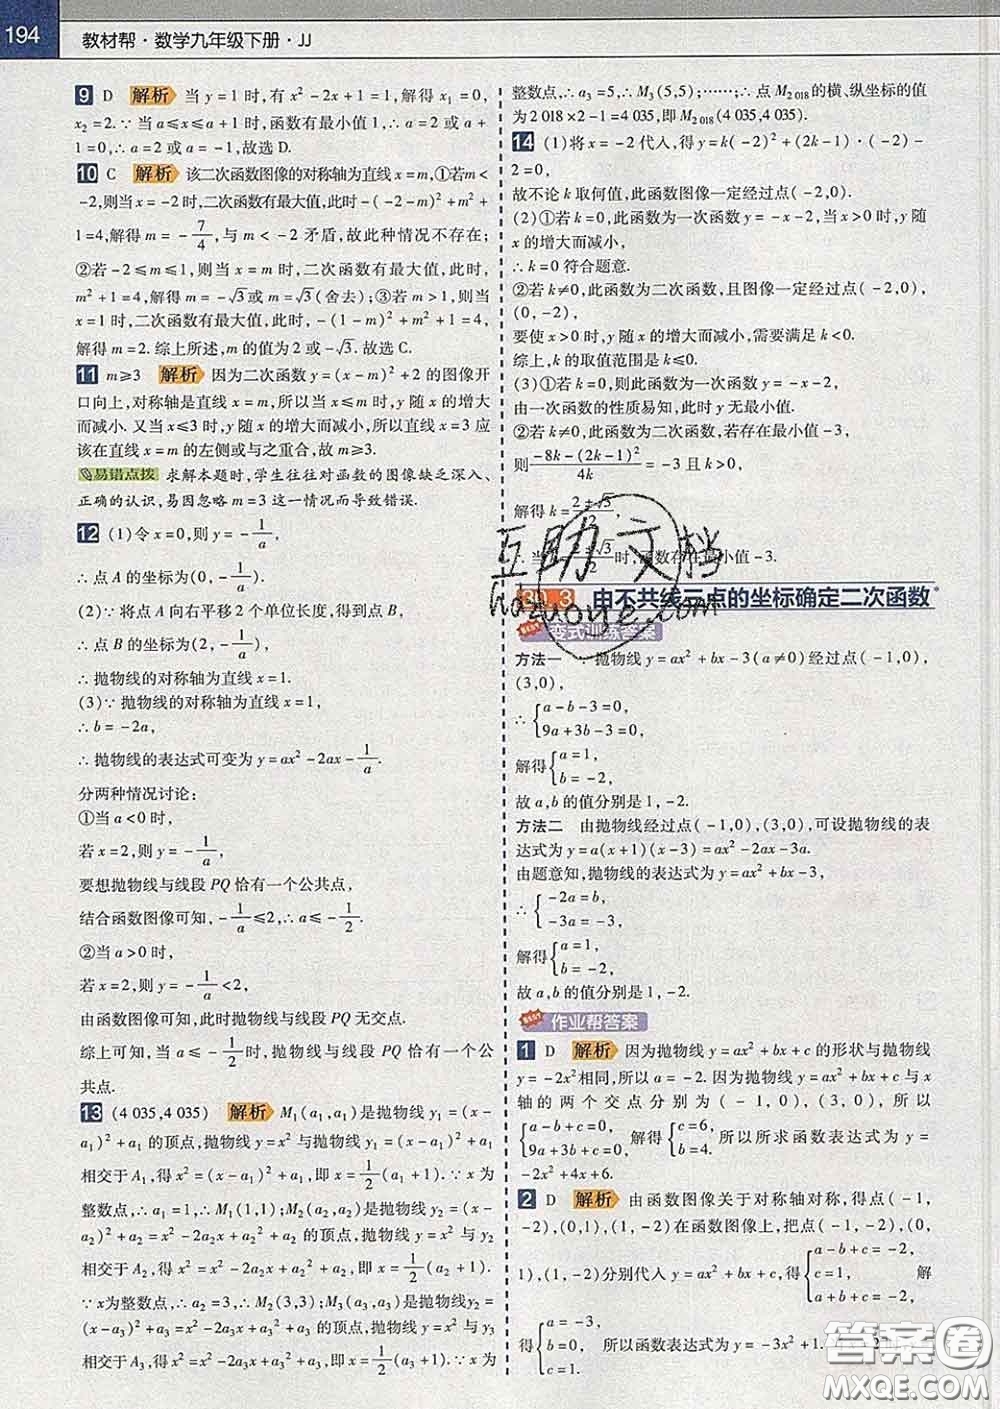 194
教材帮·数学九年级下册·JJ
9 D 解析 当 y=1 时,有 x²-2x+1=1,解得 x₁=0,
x₂=2.∵当 a≤x≤a+1 时,函数有最小值 1,∴a=2 或 a
+1=0,∴a=2 或 a=-1,故选 D.
10 C 解析 该二次函数图像的对称轴为直线 x=m,①若 m<
-2,则当 x=-2 时,二次函数有最大值,此时-(-2-m)²+m²+
1=4,解得 m=-7/4,与 m<-2 矛盾,故此种情况不存在;
②若-2≤m≤1,则当 x=m 时,二次函数有最大值,此时,
m²+1=4,解得 m=-√3或 m=√3(舍去);③若 m>1,则当
x=1 时,二次函数有最大值,此时,-(1-m)²+m²+1=4,
解得 m=2.综上所述,m 的值为 2 或-√3.故选 C.
11 m≥3 解析 因为二次函数 y=(x-m)²+2 的图像开
口向上,对称轴是直线 x=m,所以当 x≤m 时,y 随 x 的增大
而减小.又当 x≤3 时,y 随 x 的增大而减小,所以直线 x=3 应
该在直线 x=m 的左侧或与之重合,故 m≥3.
易错点拨 求解本题时,学生往往对函数的图像缺乏深入、
正确的认识,易因忽略 m=3 这一情况而导致错误.
12 (1)令 x=0,则 y=-1/a,
∴点 A 的坐标为(0,-1/a).
(2)∵将点 A 向右平移 2 个单位长度,得到点 B,
∴点 B 的坐标为(2,-1/a),
∴抛物线的对称轴为直线 x=1.
(3)∵抛物线的对称轴为直线 x=1,
∴b=-2a,
∴抛物线的表达式可变为 y=ax²-2ax-1/a.
分两种情况讨论:
①当 a<0 时,
若 x=2,则 y=-1/a,
要想抛物线与线段 PQ 恰有一个公共点,
结合函数图像可知,-1/a≤2,∴a≤-1/2.
②当 a>0 时,
若 x=2,则 y=-1/a<2,
由函数图像可知,此时抛物线与线段 PQ 无交点.
综上可知,当 a≤-1/2时,抛物线与线段 PQ 恰有一个公
共点.
13 (4 035,4 035) 解析 M₁(a₁,a₁)是抛物线 y₁=(x-
a₁)²+a₁ 的顶点,抛物线 y=x² 与抛物线 y₁=(x-a₁)²+a₁
相交于 A₁,得 x²=(x-a₁)²+a₁,即 x=1/2(a₁+1).∵x 为
整数点,∴a₁=1,∴M₁(1,1);M₂(a₂,a₂)是抛物线 y₂=
(x-a₂)²+a₂=x²-2a₂x+a₂²+a₂ 的顶点,抛物线 y=x² 与 y₂
相交于 A₂,得 x²=x²-2a₂x+a₂²+a₂,即 x=1/2(a₂+1).
∵x为整数点,∴a₂=3,∴M₂(3,3);M₃(a₃,a₃)是抛物线y₃=
(x-a₃)²+a₃=x²-2a₃x+a₃²+a₃ 的顶点,抛物线 y=x² 与 y₃
相交于 A₃,得 x²=x²-2a₃x+a₃²+a₃,即 x=1/2(a₃+1).∵x 为
整数点,∴a₃=5,∴M₃(5,5);……;∴点 M₂₀₁₈的横、纵坐标的值
为 2 018×2-1=4 035,即 M₂₀₁₈(4 035,4 035).
14 (1)将 x=-2 代入,得 y=k(-2)²+(2k-1)·(-2)-
2=0,
故不论 k 取何值,此函数图像一定经过点(-2,0).
(2)①若 k=0,此函数为一次函数 y=-x-2,当 x>0 时,y 随
x 的增大而减小,
∴k=0 符合题意.
②若 k≠0,此函数为二次函数,且图像一定经过点(-2,0),
(0,-2),
要使 x>0 时,y 随 x 的增大而减小,需要满足 k<0.
综上,k 的取值范围是 k≤0.
(3)①若 k=0,则此函数为一次函数 y=-x-2,
由一次函数的性质易知,此时 y 无最小值.
②若 k≠0,此函数为二次函数,若此二次函数存在最小值-3,
则(-8k-(2k-1)²)/4k=-3 且 k>0,
解得 k=(2±√3)/2,
∴当 k=(2±√3)/2时,函数存在最小值-3.
30.3 由不共线三点的坐标确定二次函数*
变式训练答案
方法一 ∵抛物线 y=ax²+bx-3(a≠0)经过点(-1,0),
(3,0),
∴{a-b-3=0,
9a+3b-3=0,
解得{a=1,
b=-2,
故 a,b 的值分别是 1,-2.
方法二 由抛物线经过点(-1,0),(3,0),可设抛物线的表
达式为 y=a(x+1)(x-3)=ax²-2ax-3a.
由题意知,抛物线的表达式为 y=ax²+bx-3,
∴{-2a=b,
-3a=-3,
解得{a=1,
b=-2,
故 a,b 的值分别是 1,-2.
作业帮答案
1 D 解析 因为抛物线 y=ax²+bx+c 的形状与抛物线
y=-2x²相同,所以 a=-2.因为抛物线 y=ax²+bx+c与x
轴的两个交点分别为(-1,0),(3,0),所以
{a-b+c=0,
9a+3b+c=0, 解得{c=6,
b=4. 所以所求函数表达式为 y=
-2x²+4x+6.
2 D 解析 由函数图像关于对称轴对称,得点(-1,
-2),(0,1),(1,-2)在函数图像上,把点(-1,-2),(0,
1),(1,-2)分别代入 y=ax²+bx+c,得{a-b+c=-2,
c=1,
a+b+c=-2, 解
得{a=-3,
b=0,
c=1. 所以函数表达式为 y=-3x²+1.
互助文档
hdzuoye.com
答案圈
MXQE.COM